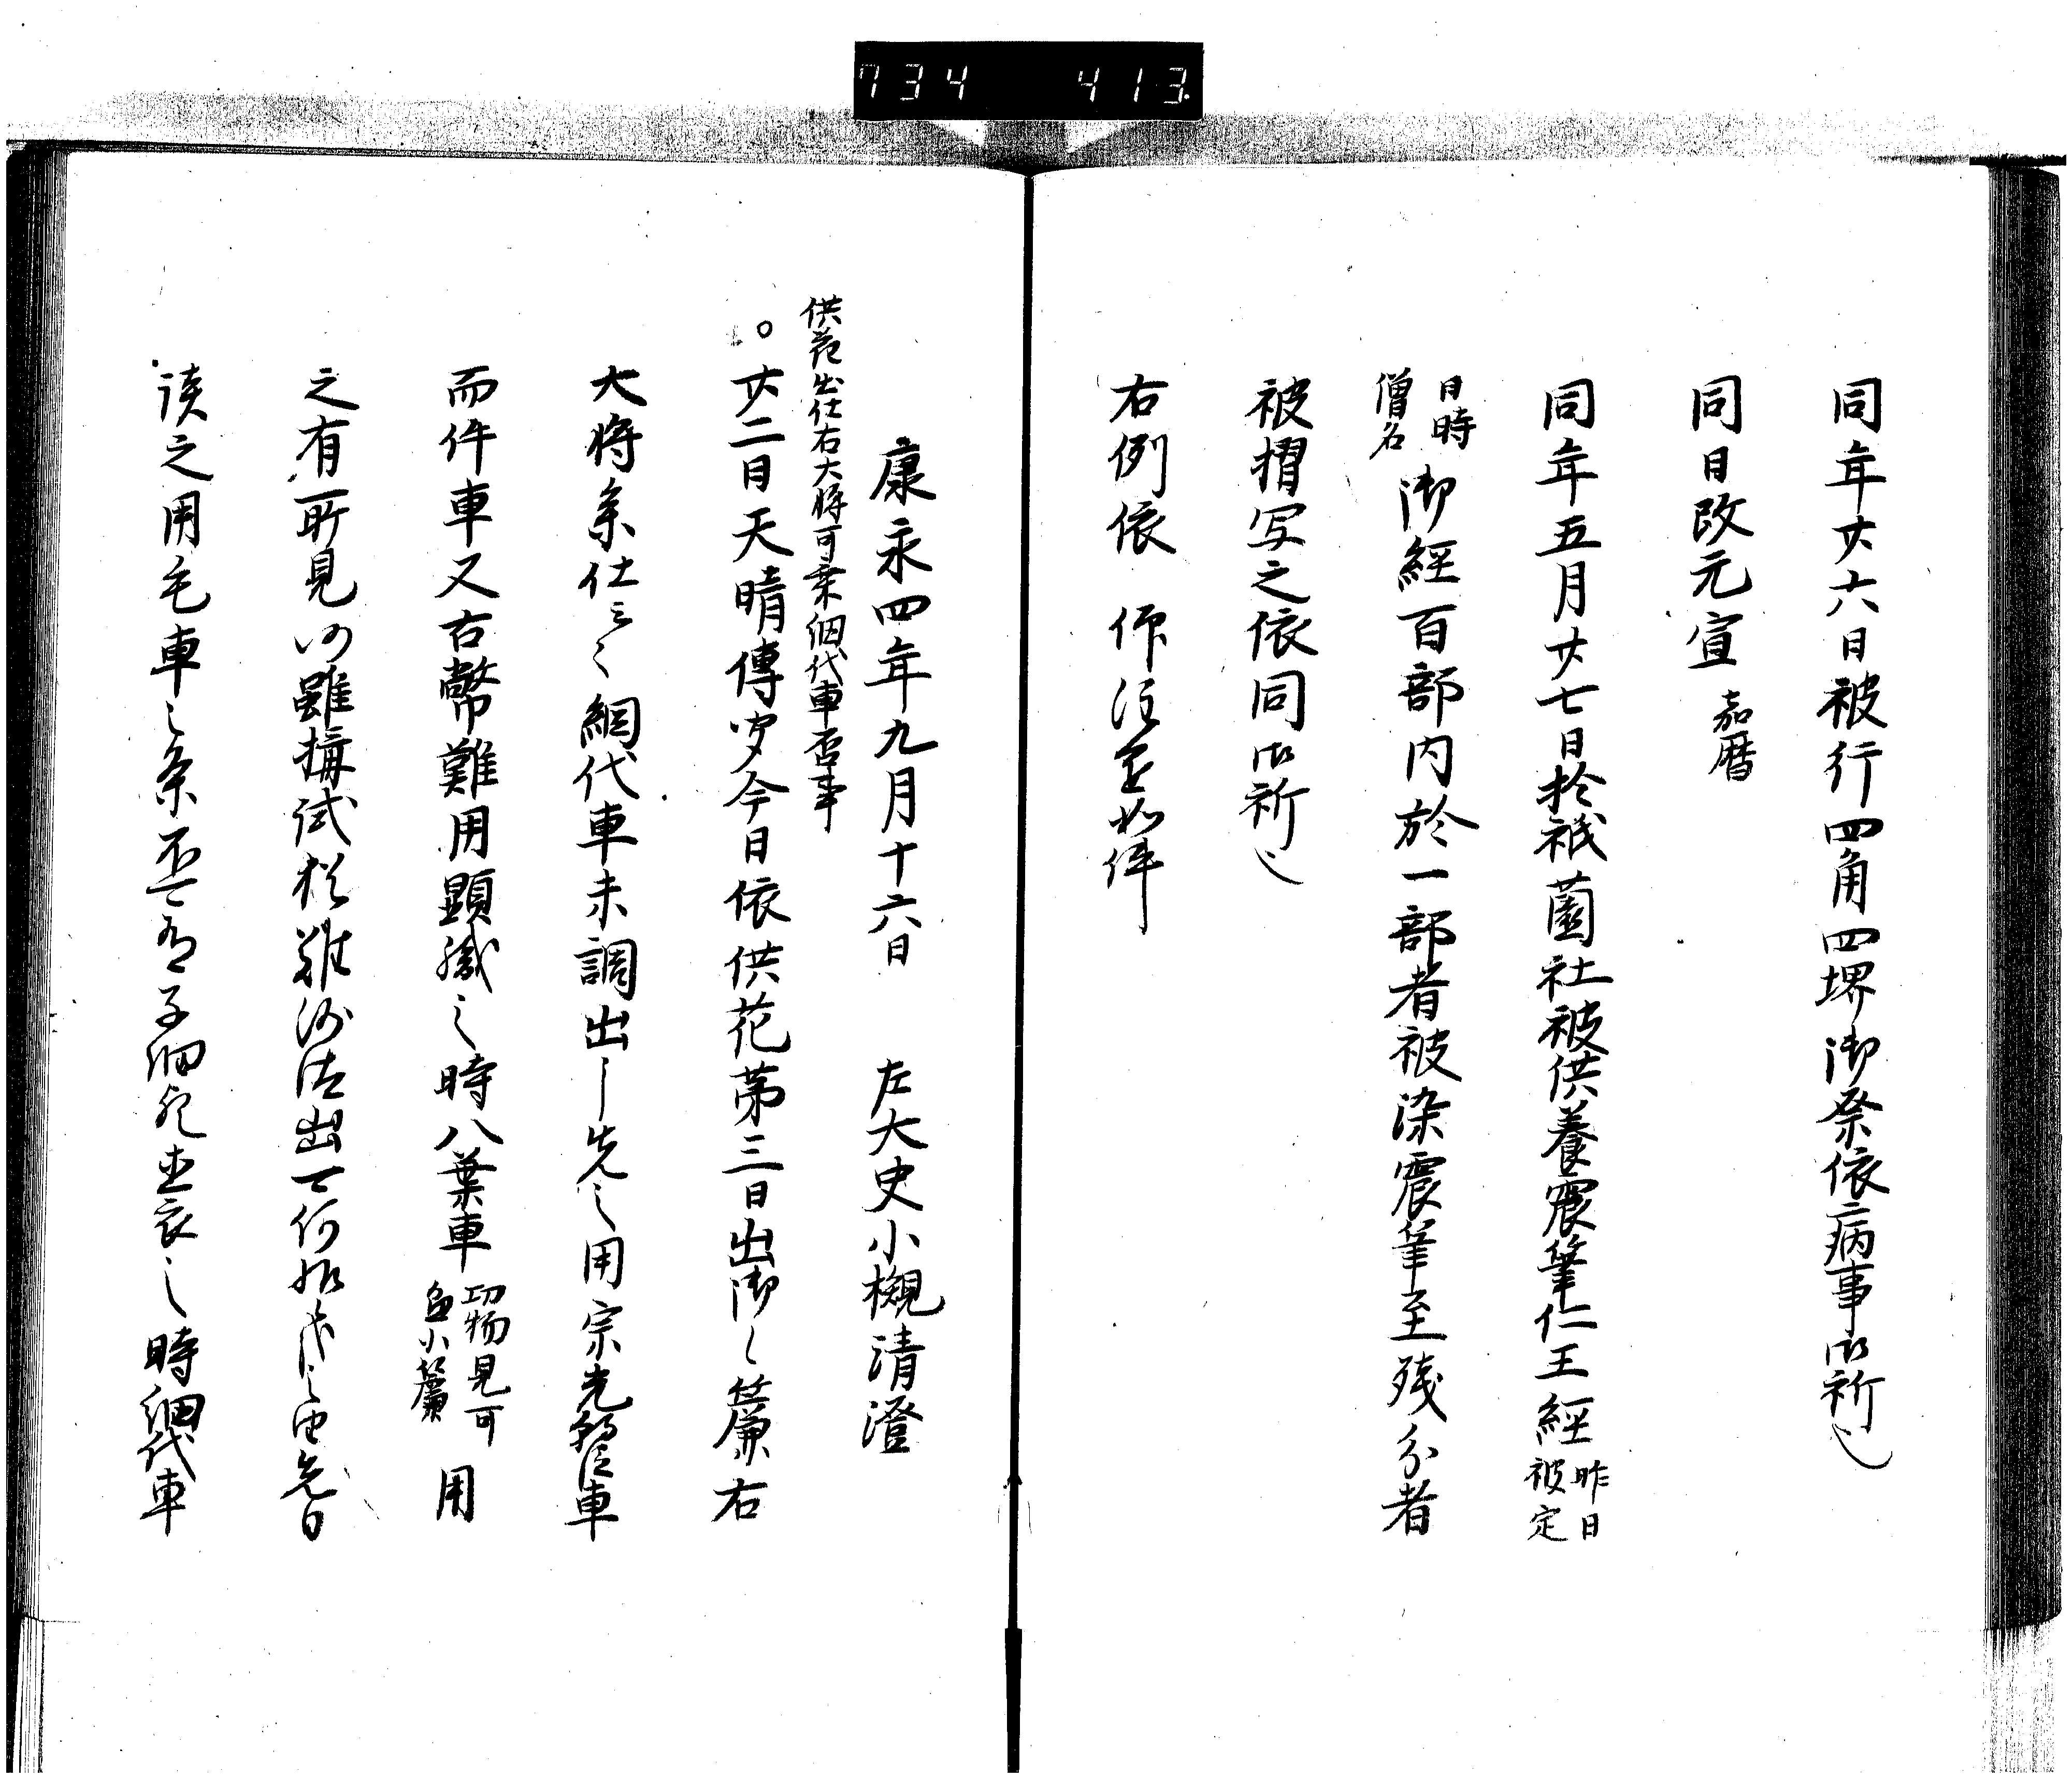 734 413
同年廿六日被行四角四堺御祭依病事御祈也
同日改元宣嘉暦
同年五月廿七日於祇薗社被供養震筆仁王経昨日被定
日時僧名御経百部内於一部者被染震筆至残分者
被摺写之依同御祈也
右例依仰注進如件
康永四年九月十六日 左大史小槻清澄
供花出仕右大将可乗網代車否事
。廿二日天晴傳聞今日依供花第三日出御々簾右
大将参仕云々網代車未調出之先々用宗光朝臣車
而件車又古幣難用顕職之時八葉車切物見可無小簾用
之有所見仍雖揖試猶難沙汰出可何様哉之由先日
談之用毛車之条不可有子細兎直衣之時網代車